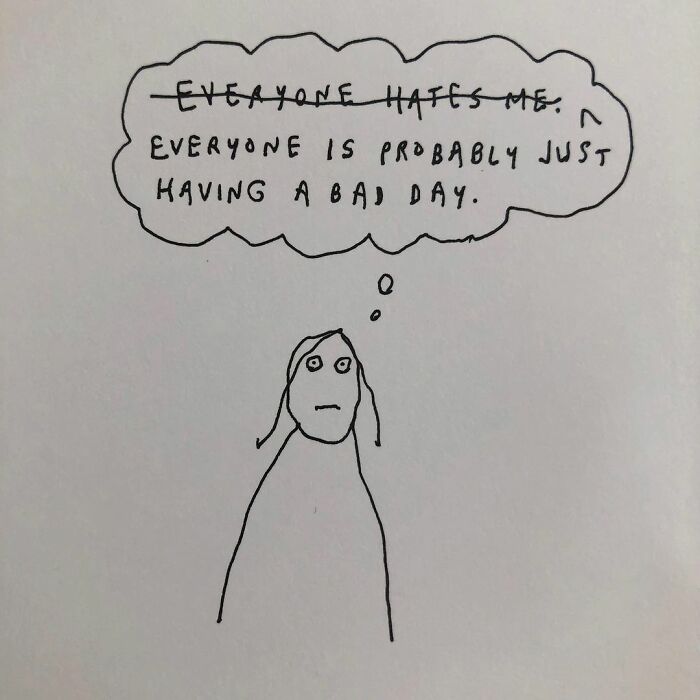 EVERYONE HATES ME.
EVERYONE IS PROBABLY JUST
HAVING A BAD DAY.